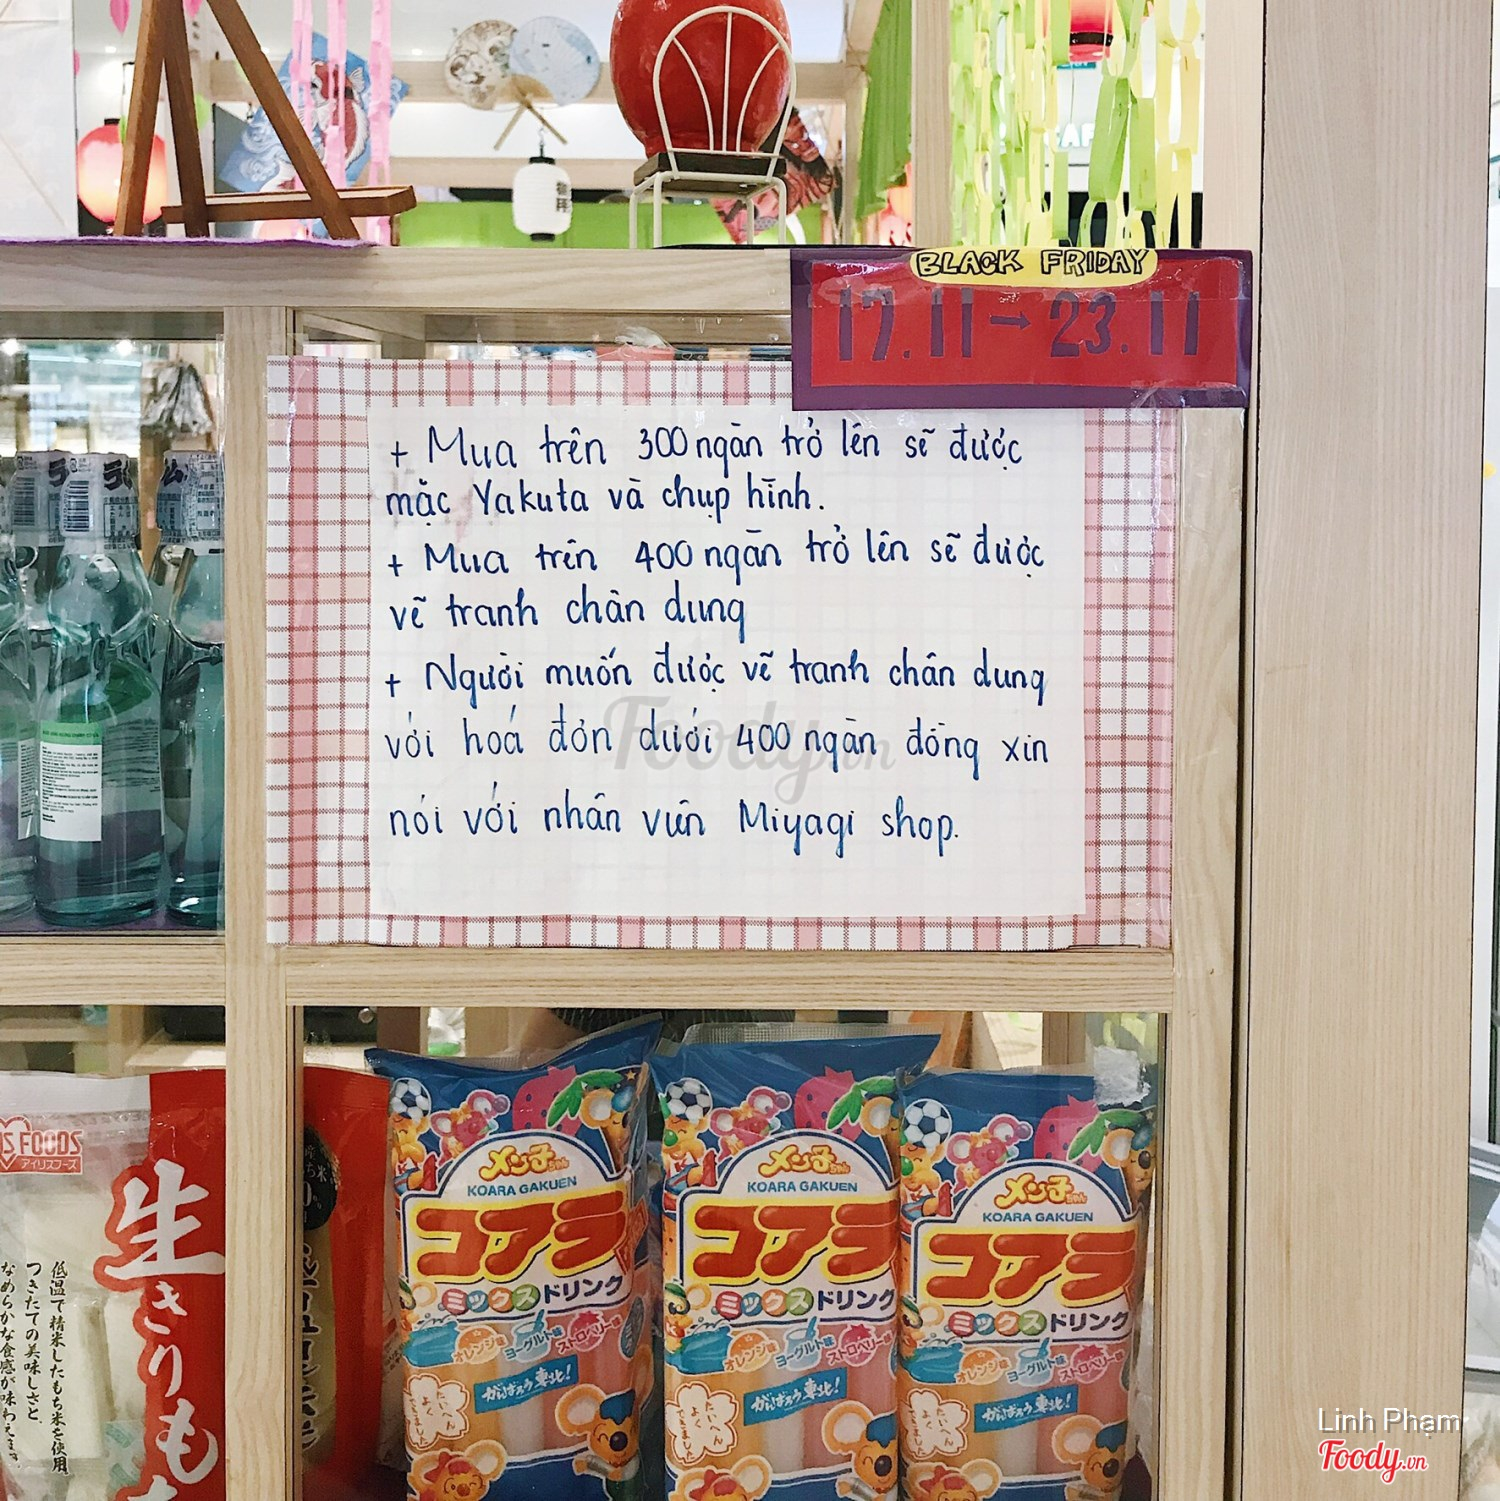 BLACK FRIDAY
17.11 → 23.11
+ Mua trên 300 ngàn trở lên sẽ được
mặc Yakuta và chụp hình.
+ Mua trên 400 ngàn trở lên sẽ được
vẽ tranh chân dung
+ Người muốn được vẽ tranh chân dung
với hoá đơn dưới 400 ngàn đồng xin
nói với nhân viên Miyagi shop.
Foody.vn
FOODS
アイリスフーズ
生きりも
低温で精米したもち米を使用
つきたての美味しさと
なめらかな食感が味わえます。
メン子ちゃん
KOARA GAKUEN
コアラ
ミックスドリンク
オレンジ味
ヨーグルト味
ストロベリー味
がんばろう東北!
たいへん
よく
できました
メン子ちゃん
KOARA GAKUEN
コアラ
ミックスドリンク
オレンジ味
ヨーグルト味
ストロベリー味
がんばろう東北!
たいへん
よく
できました
メン子ちゃん
KOARA GAKUEN
コアラ
ミックスドリンク
オレンジ味
ヨーグルト味
ストロベリー味
がんばろう東北!
たいへん
よく
できました
Linh Phạm
Foody.vn